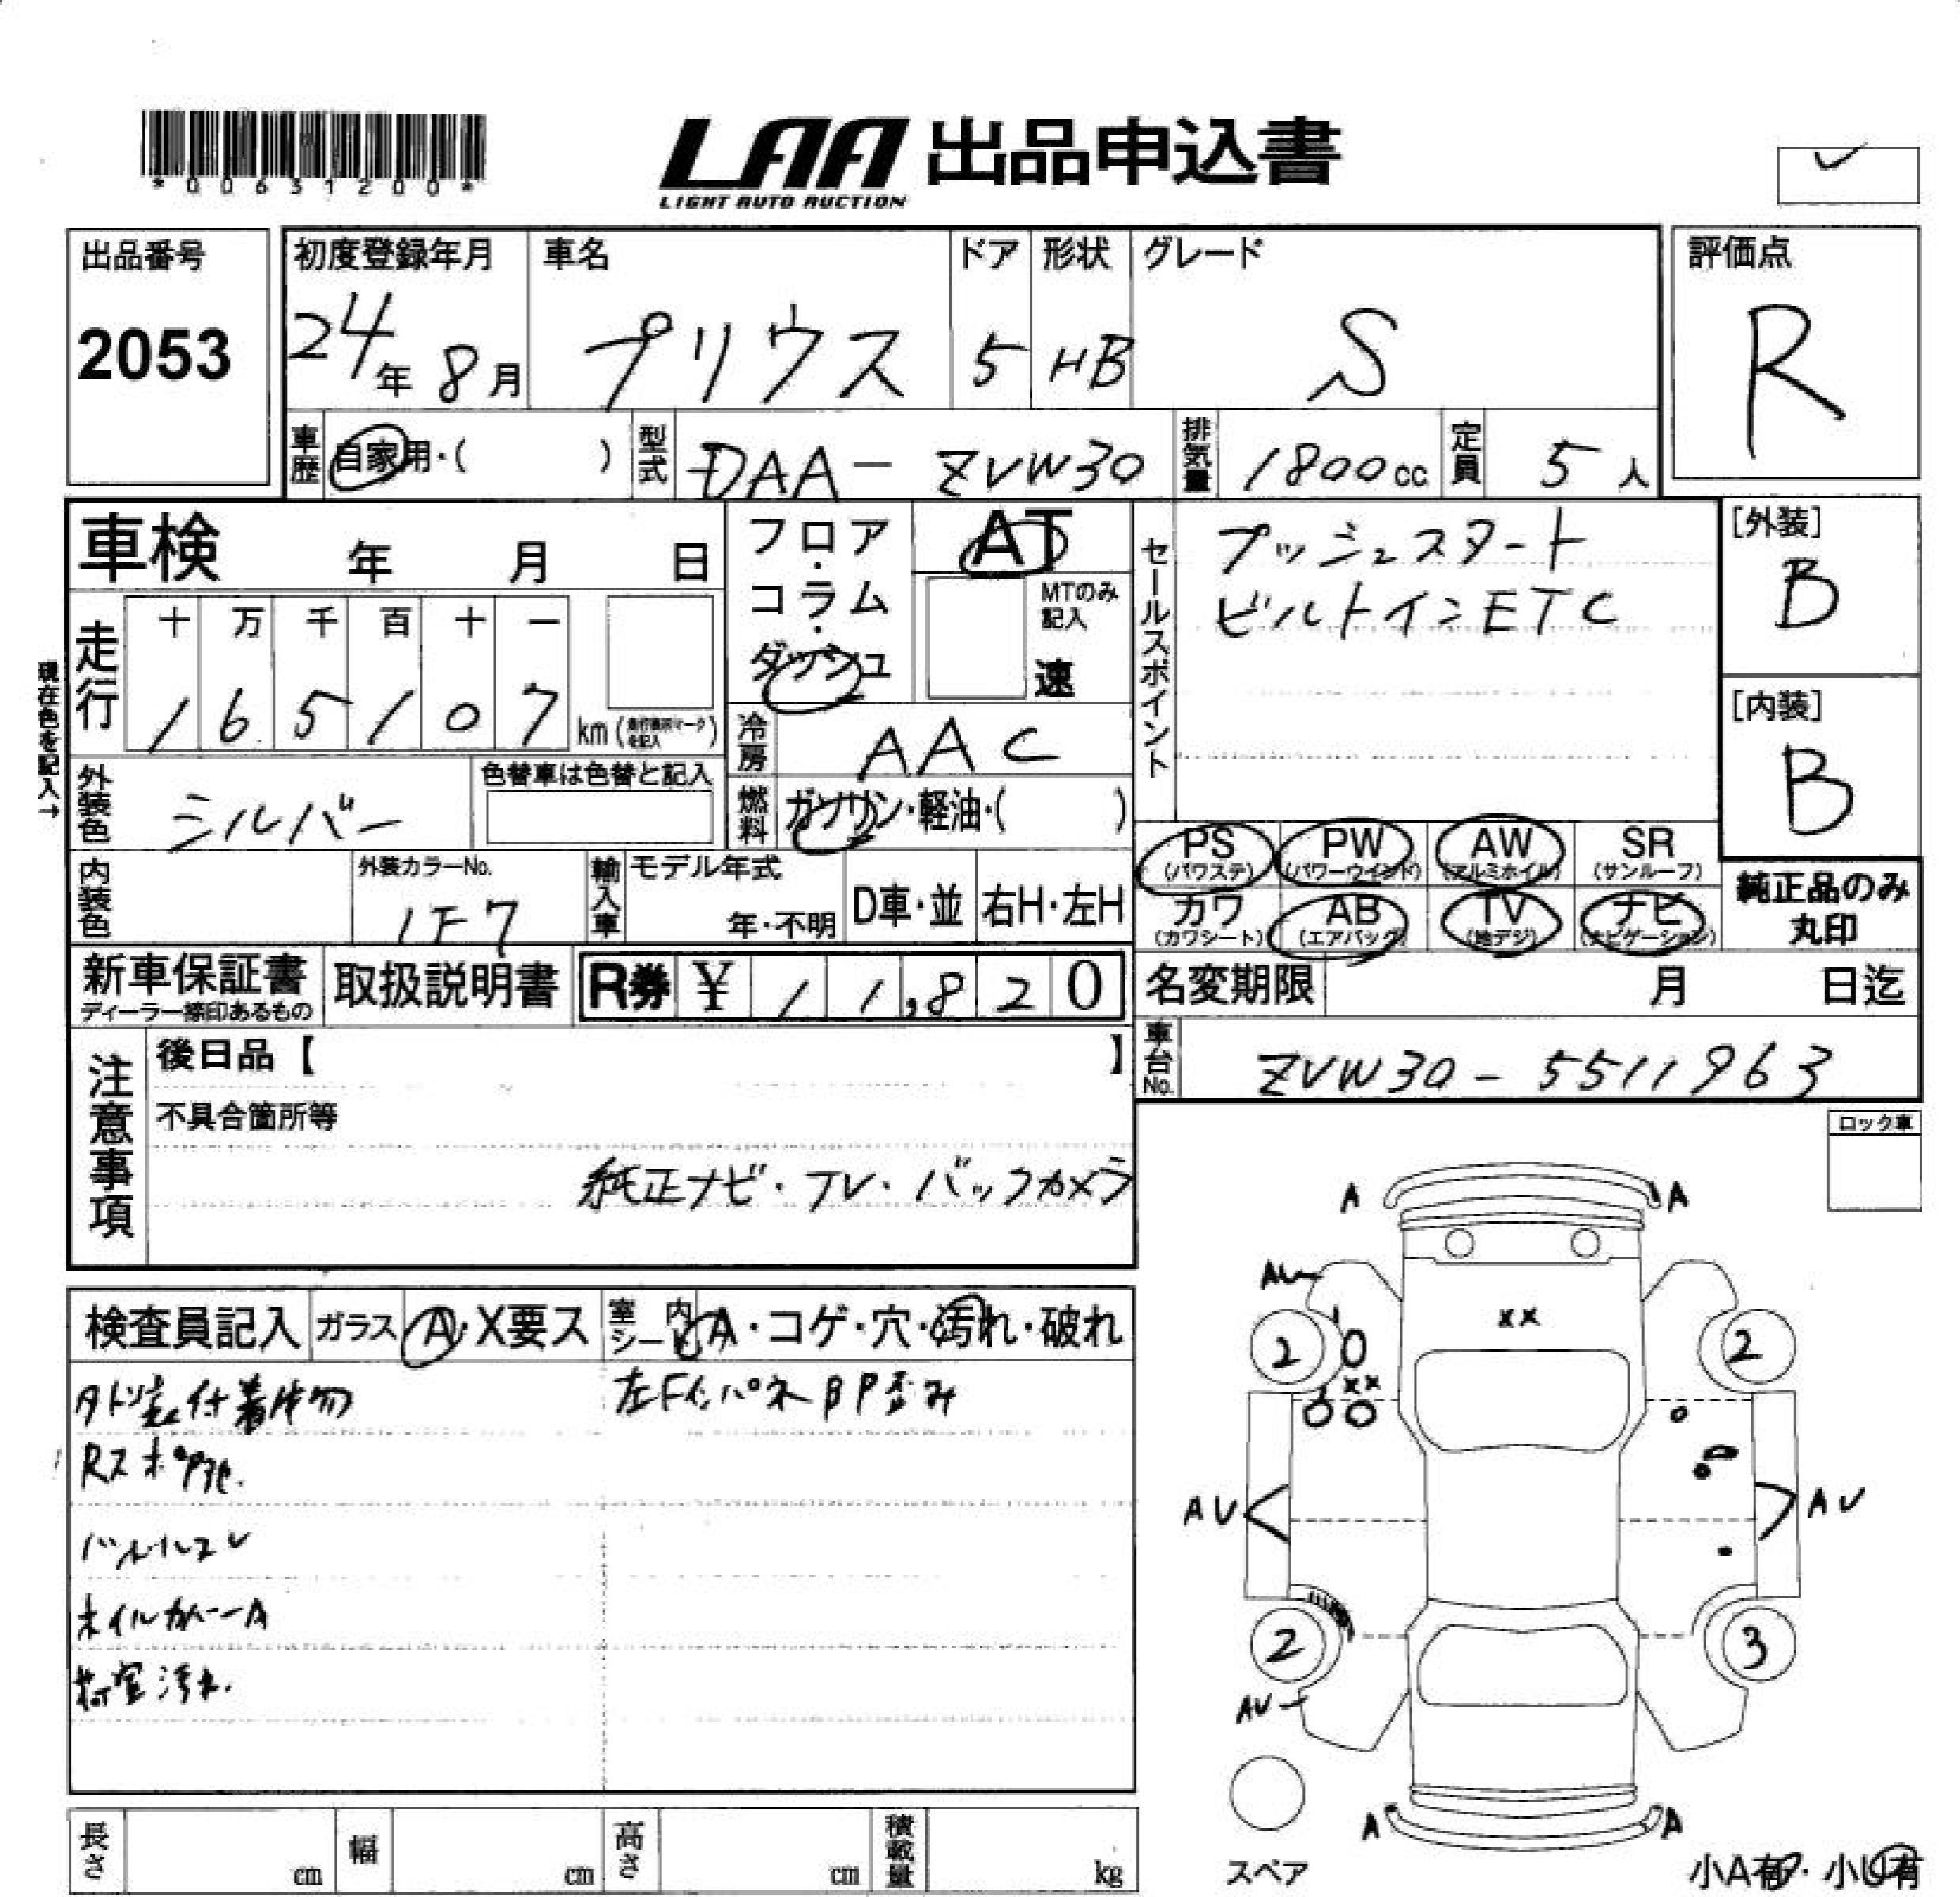 *00631200*
LAA 出品申込書
LIGHT AUTO AUCTION
出品番号
2053
初度登録年月
24年 8月
車名
プリウス
ドア
5
形状
HB
グレード
S
評価点
R
車歴 自家用・( )
型式 DAA-ZVW30
排気量 1800cc
定員 5人
車検 年 月 日
フロア・コラム・ダッシュ
AT
MTのみ記入
速
セールスポイント
プッシュスタート
ビルトインETC
[外装]
B
[内装]
B
現在色を記入→
走行
十 万 千 百 十 一
1 6 5 1 0 7 km
冷房 AAC
燃料 ガソリン・軽油・( )
外装色 シルバー
色替車は色替と記入
内装色
外装カラーNo.
1F7
輸入車
モデル年式
年・不明
D車・並
右H・左H
PS (パワステ)
PW (パワーウインド)
AW (アルミホイル)
SR (サンルーフ)
カワ (カワシート)
AB (エアバック)
TV (地デジ)
ナビ (ナビゲーション)
純正品のみ丸印
新車保証書
ディーラー捺印あるもの
取扱説明書
R券 ¥ 11,820
名変期限 月 日迄
車台No. ZVW30-5511963
注意事項
後日品【 】
不具合箇所等
純正ナビ・TV・バックカメラ
ロック車
検査員記入
ガラス A・X要ス
室内 シート A・コゲ・穴・汚れ・破れ
左Fインパネ BP歪み
ホイルカバーA
荷室汚れ
A A
AU
XX
2 2
XX
AU AU
2 3
AU
A A
スペア
小A有・小U有
長さ cm
幅 cm
高さ cm
積載量 kg